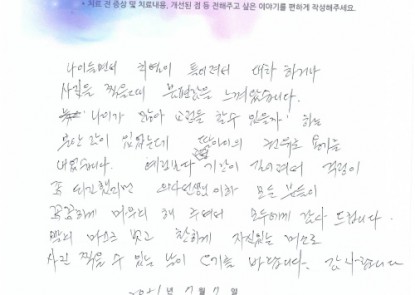 * 치료 전 증상 및 치료내용, 개선된 점 등 전해주고 싶은 이야기를 편하게 작성해주세요.
나이들면서 치열이 틀어져서 대화 하거나
사진을 찍을때 불편함을 느껴왔습니다.
나이가 많아 교정을 할수 있을까 하는
부담감이 있었는데 딸아이의 권유로 용기를
내었습니다. 예정보다 기간이 길어져서 걱정이
꼼꼼하게 마무리 해 주셔서 모두에게 감사 드립니다.
빨리 마스크 벗고 환하게 자신있는 미소로
사진 찍을 수 있는 날이 오기를 바랍니다. 감사합니다